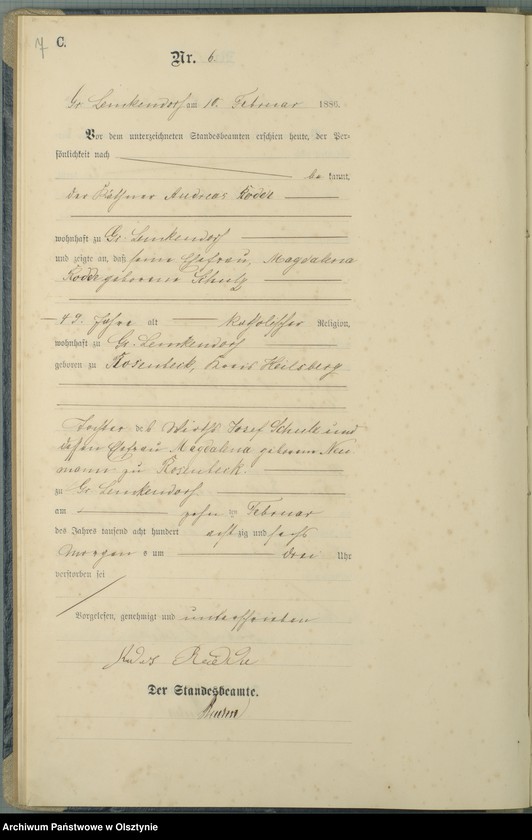 7 C.
Nr. 6.
Gr Lemkendorf am 10. Februar 1886.
Vor dem unterzeichneten Standesbeamten erschien heute, der Per-
sönlichkeit nach
be kannt,
der Käthner Andreas
wohnhaft zu Gr. Lemkendorf
und zeigte an, daß seine Ehefrau, Magdalena
geborene Schulz
49. Jahre alt katholischer Religion,
wohnhaft zu Gr. Lemkendorf
geboren zu Rosenbeck, Kreis Heilsberg
Tochter des Wirths Josef Schulz und
dessen Ehefrau Magdalena geborene Neu
mann zu Rosenbeck.
zu Gr Lemkendorf
am zehn ten Februar
des Jahres tausend acht hundert achtzig und sechs
Morgens um drei Uhr
verstorben sei
Vorgelesen, genehmigt und unterschrieben
Der Standesbeamte.
Archiwum Państwowe w Olsztynie